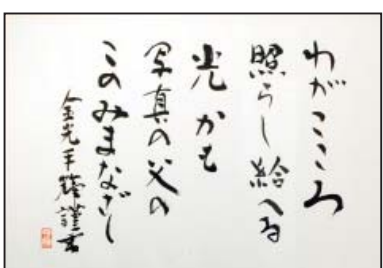 わがこころ
照らし給へる
光かも
写真の父の
このみまなざし
金光平輝謹書